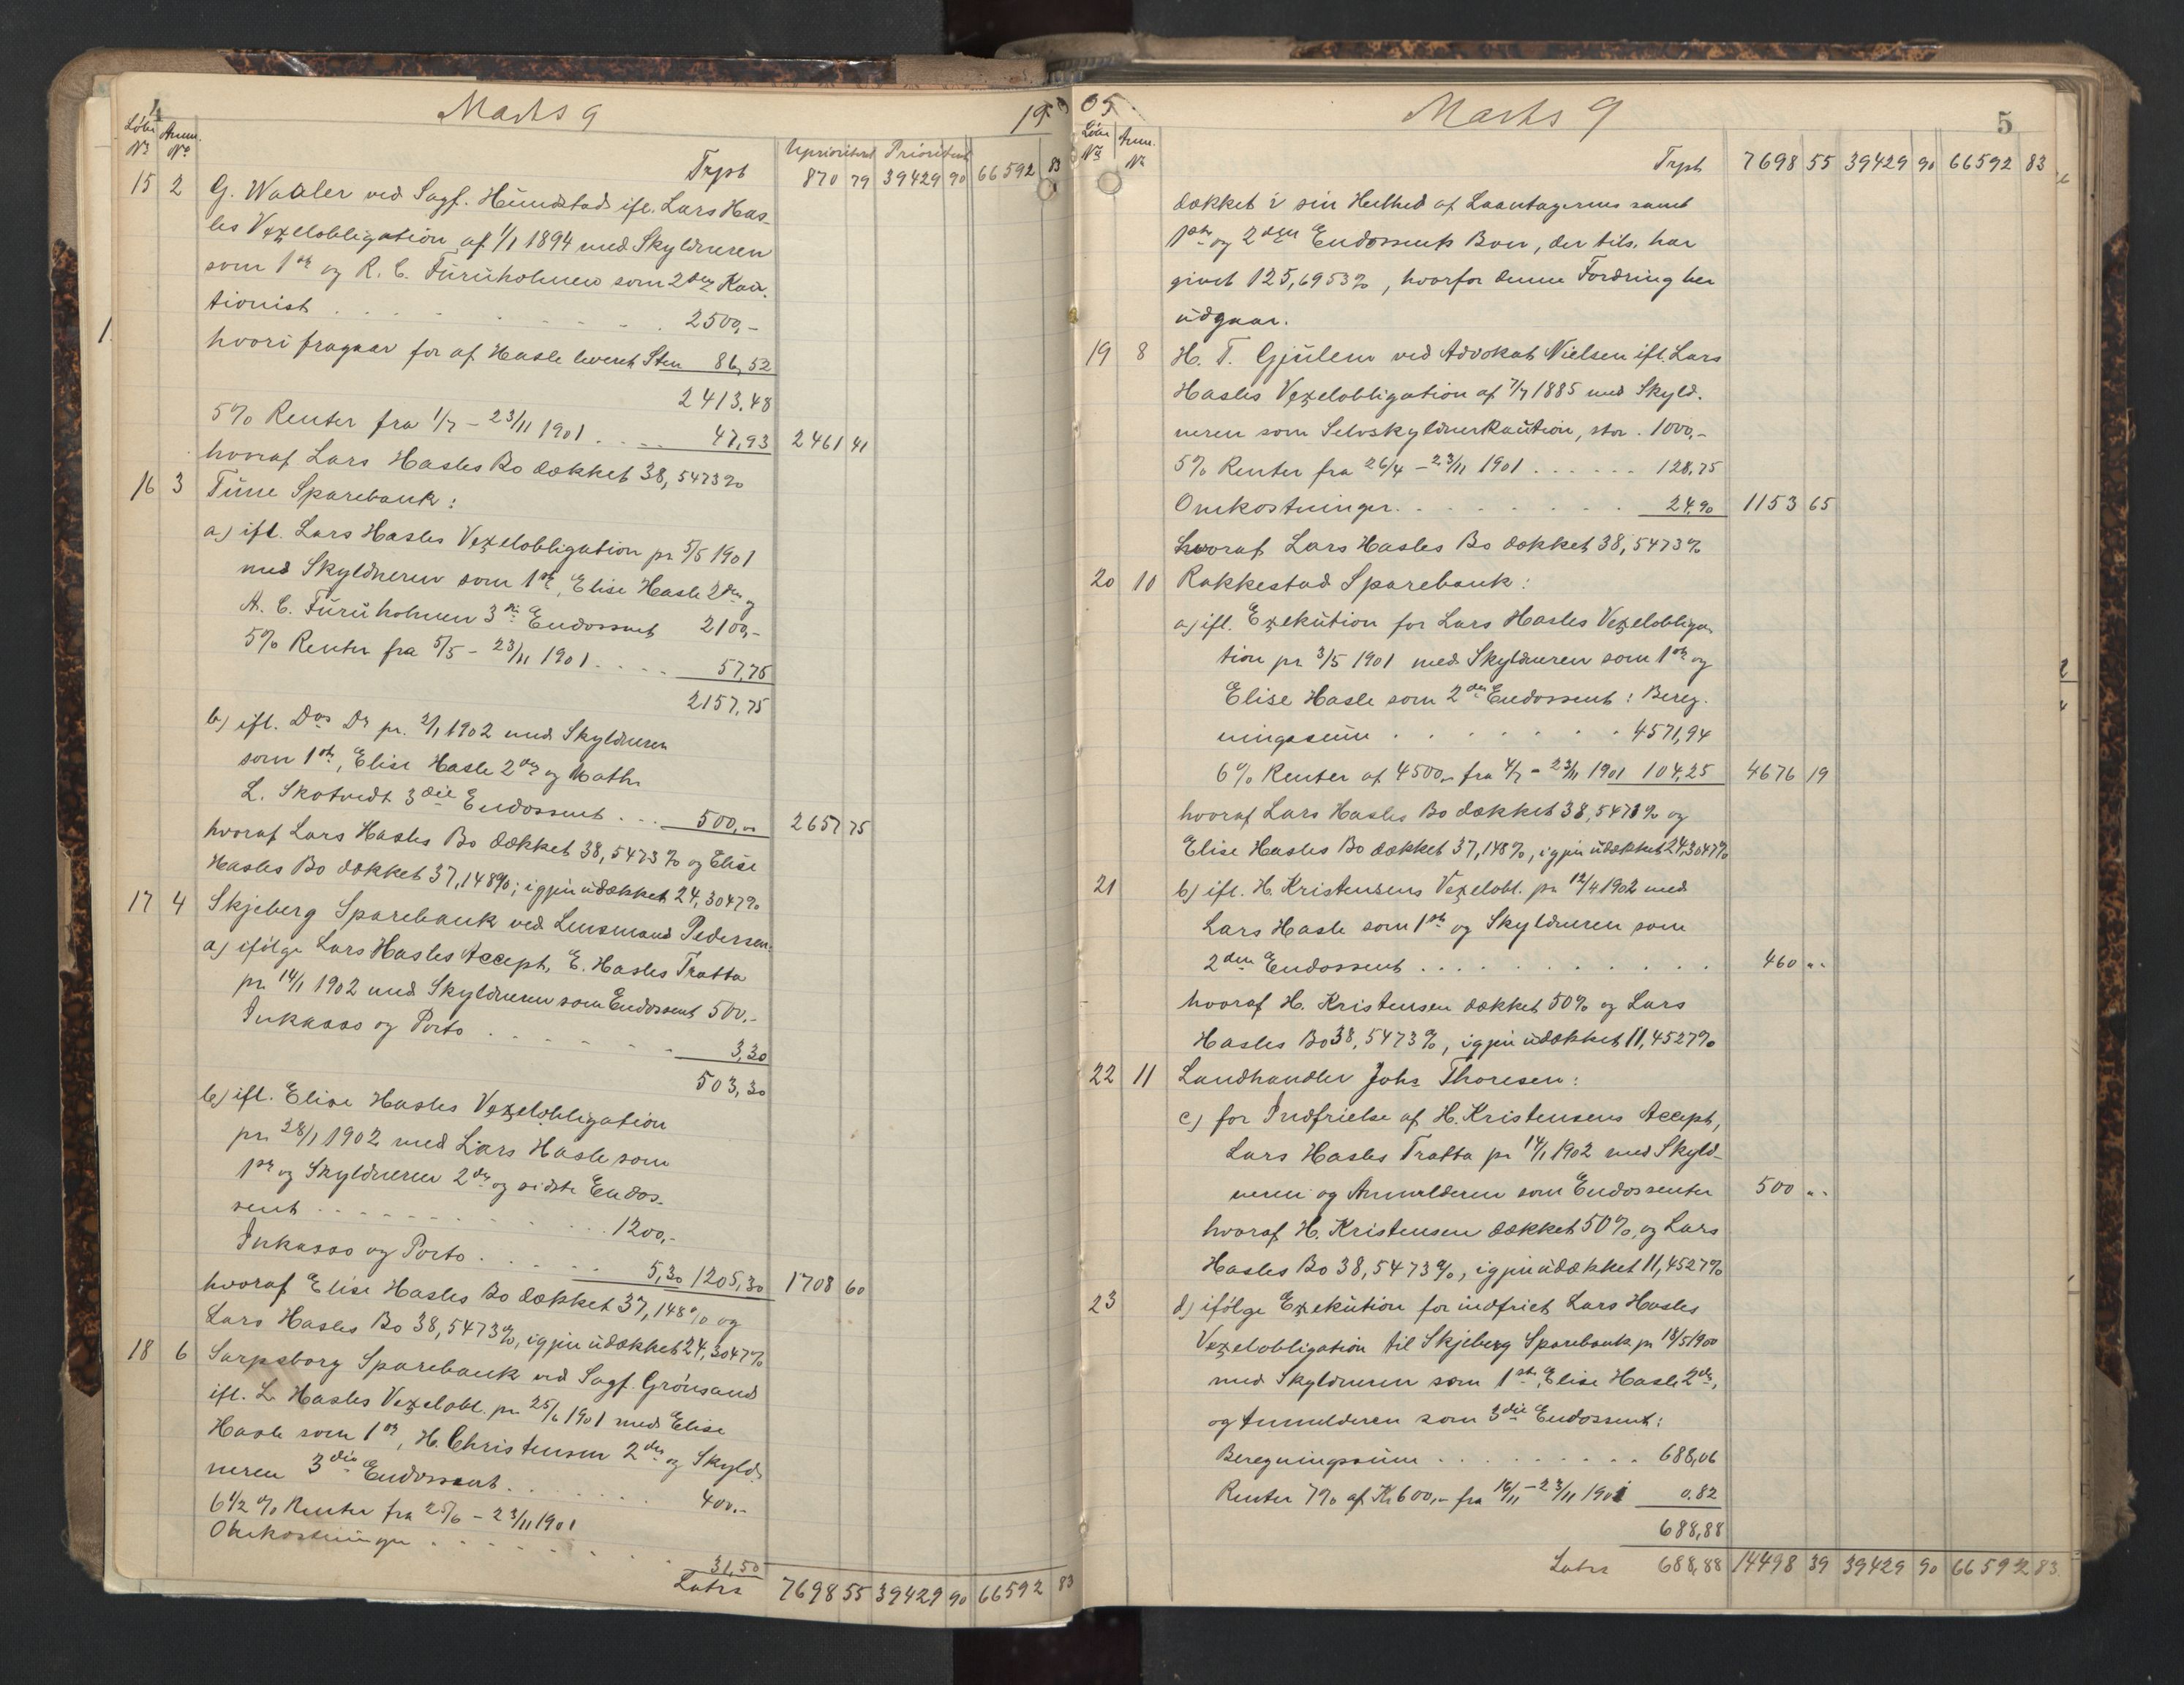 4
Marts 9
19
Løbe Nr.
Anm. Nr.
Uprioritert
Prioritert
Trpt 870 79 39429 90 66592 83
15 2 G. Waaler ved Sagf. Hundstad ifl. Lars Has-
les Vexelobligation af 1/1 1894 med Skyldneren
som 1ste og R. C. Furuholmen som 2den Kau-
tionist . . . . 2500,-
hvori fragaar for af Hasle leveret Sten 86,52
2413.48
5% Renter fra 1/7 - 23/11 1901 . . . . 47,93 2461 41
hvoraf Lars Hasles Bo dækket 38,5473%
16 3 Tune Sparebank:
a) ifl. Lars Hasles Vexelobligation pr 5/5 1901
med Skyldneren som 1ste, Elise Hasle 2den og
A. C. Furuholmen 3die Endossent 2100,-
5% Renter fra 5/5 - 23/11 1901 . . . . 57,75
2157,75
b) ifl. Dos Do pr. 2/1 1902 med Skyldneren
som 1ste, Elise Hasle 2den og Math.
L. Skotvedt 3die Endossent . . . 500,- 2657 75
hvoraf Lars Hasles Bo dækket 38,5473% og Elise
Hasles Bo dækket 37,148%; igjen udækket 24,3047%
17 4 Skjeberg Sparebank ved Lensmand Pedersen.
a) ifølge Lars Hasles Accept, E. Hasles Tratta
pr. 14/1 1902 med Skyldneren som Endossent 500.-
Inkasso og Porto . . . . 3,30
503,30
b) ifl. Elise Hasles Vexelobligation
pr. 28/1 1902 med Lars Hasle som
1ste og Skyldneren 2den og sidste Endos-
sent . . . . 1200,-
Inkasso og Porto . . . . 5,30 1205,30 1708 60
hvoraf Elise Hasles Bo dækket 37,148% og
Lars Hasles Bo 38,5473%, igjen udækket 24,3047%
18 6 Sarpsborg Sparebank ved Sagf. Grønsand
ifl. L. Hasles Vexelobl. pr 25/6 1901 med Elise
Hasle som 1ste, H. Christensen 2den og Skyld-
neren 3die Endossent . . . . 400.-
6 1/2 % Renter fra 25/6 - 23/11 1901
Omkostninger . . . . 31,50
Latus 7698 55 39429 90 66592 83
05
Marts 9
5
Løbe Nr.
Anm. Nr.
Trpt 7698 55 39429 90 66592 83
dækket i sin Helhed af Laantagerens samt
1ste og 2den Endossents Boer, der tils. har
givet 125,6953%, hvorfor denne Fordring her
udgaar.
19 8 H. T. Gjulem ved Advokat Nielsen ifl. Lars
Hasles Vexelobligation af 7/7 1885 med Skyld-
neren som SelvskyldnerKaution, stor . 1000,-
5% Renter fra 26/4 - 23/11 1901 . . . . 128,75
Omkostninger . . . . 24,90 1153 65
hvoraf Lars Hasles Bo dækket 38,5473%
20 10 Rakkestad Sparebank:
a) ifl. Exekution for Lars Hasles Vexelobliga-
tion pr 3/5 1901 med Skyldneren som 1ste og
Elise Hasle som 2den Endossent: Bereg-
ningssum . . . . 4571,94
6% Renter af 4500,- fra 4/7 - 23/11 1901 104,25 4676 19
hvoraf Lars Hasles Bo dækket 38,5473% og
Elise Hasles Bo dækket 37,148%, igjen udækket 24,3047%
21 b) ifl. H. Kristensens Vexelobl. pr 12/4 1902 med
Lars Hasle som 1ste og Skyldneren som
2den Endossent . . . . 460 "
hvoraf H. Kristensen dækket 50% og Lars
Hasles Bo 38,5473%, igjen udækket 11,4527%
22 11 Landhandler Johs Thoresen:
c) for Indfrielse af H. Kristensens Accept,
Lars Hasles Tratta pr 14/1 1902 med Skyld-
neren og Anmelderen som Endossenter 500 "
hvoraf H. Kristensen dækket 50%, og Lars
Hasles Bo 38,5473%, igjen udækket 11,4527%
23 d) ifølge Exekution for indfriet Lars Hasles
Vexelobligation til Skjeberg Sparebank pr 18/5 1900
med Skyldneren som 1ste, Elise Hasle 2den,
og Anmelderen som 3die Endossent:
Beregningssum . . . . 688,06
Renter 7% af Kr 600,- fra 16/11 - 23/11 1901 0.82
688,88
Latus 688,88 14498 39 39429 90 66592 83